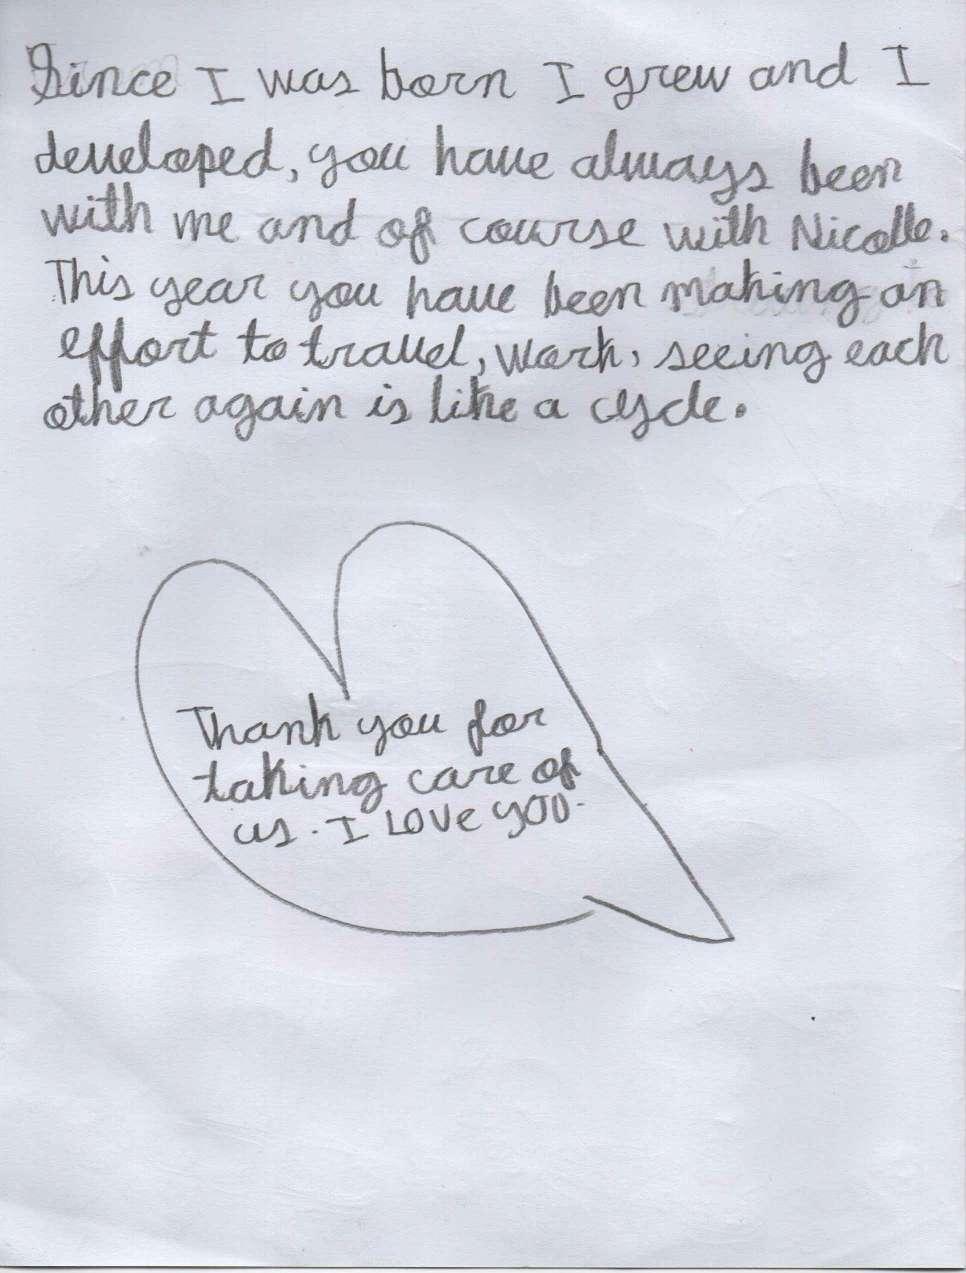 Since I was born I grew and I
developed, you have always been
with me and of course with Nicolle.
This year you have been making an
effort to travel, work, seeing each
other again is like a cycle.
Thank you for
taking care of
us. I LOVE YOU.